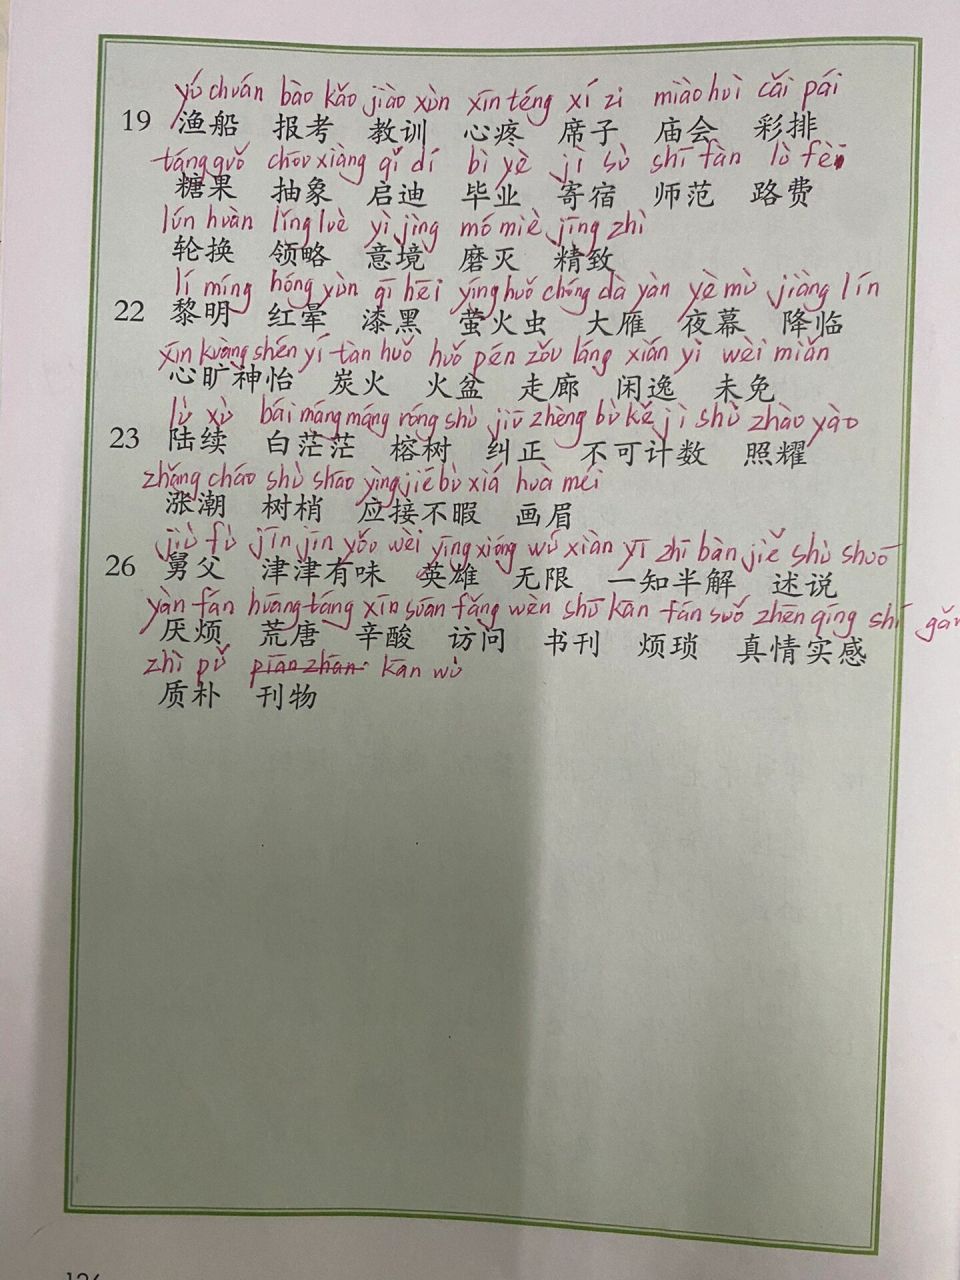 yú chuán bào kǎo jiào xùn xīn téng xí zi miào huì cǎi pái
19 渔船 报考 教训 心疼 席子 庙会 彩排
táng guǒ chōu xiàng qǐ dí bì yè jì sù shī fàn lù fèi
糖果 抽象 启迪 毕业 寄宿 师范 路费
lún huàn lǐng luè yì jìng mó miè jīng zhì
轮换 领略 意境 磨灭 精致
lí míng hóng yùn qī hēi yíng huǒ chóng dà yàn yè mù jiàng lín
22 黎明 红晕 漆黑 萤火虫 大雁 夜幕 降临
xīn kuàng shén yí tàn huǒ huǒ pén zǒu láng xián yì wèi miǎn
心旷神怡 炭火 火盆 走廊 闲逸 未免
lù xù bái máng máng róng shù jiū zhèng bù kě jì shǔ zhào yào
23 陆续 白茫茫 榕树 纠正 不可计数 照耀
zhǎng cháo shù shāo yìng jiē bù xiá huà méi
涨潮 树梢 应接不暇 画眉
jiù fù jīn jīn yǒu wèi yīng xióng wú xiàn yī zhī bàn jiě shù shuō
26 舅父 津津有味 英雄 无限 一知半解 述说
yàn fán huāng táng xīn suān fǎng wèn shū kān fán suǒ zhēn qíng shí gǎn
厌烦 荒唐 辛酸 访问 书刊 烦琐 真情实感
zhì pǔ kān wù
质朴 刊物